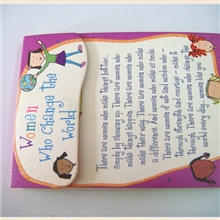 Women
Who Change the
World
There are women who make things better...
simply by showing up. There are women who make
things happen. There are women who make
their way. There are women who make
a difference. And women who make us smile.
There are women of wit and wisdom who -
through strength and courage - make it
through. There are women who change the
world every day... women like you